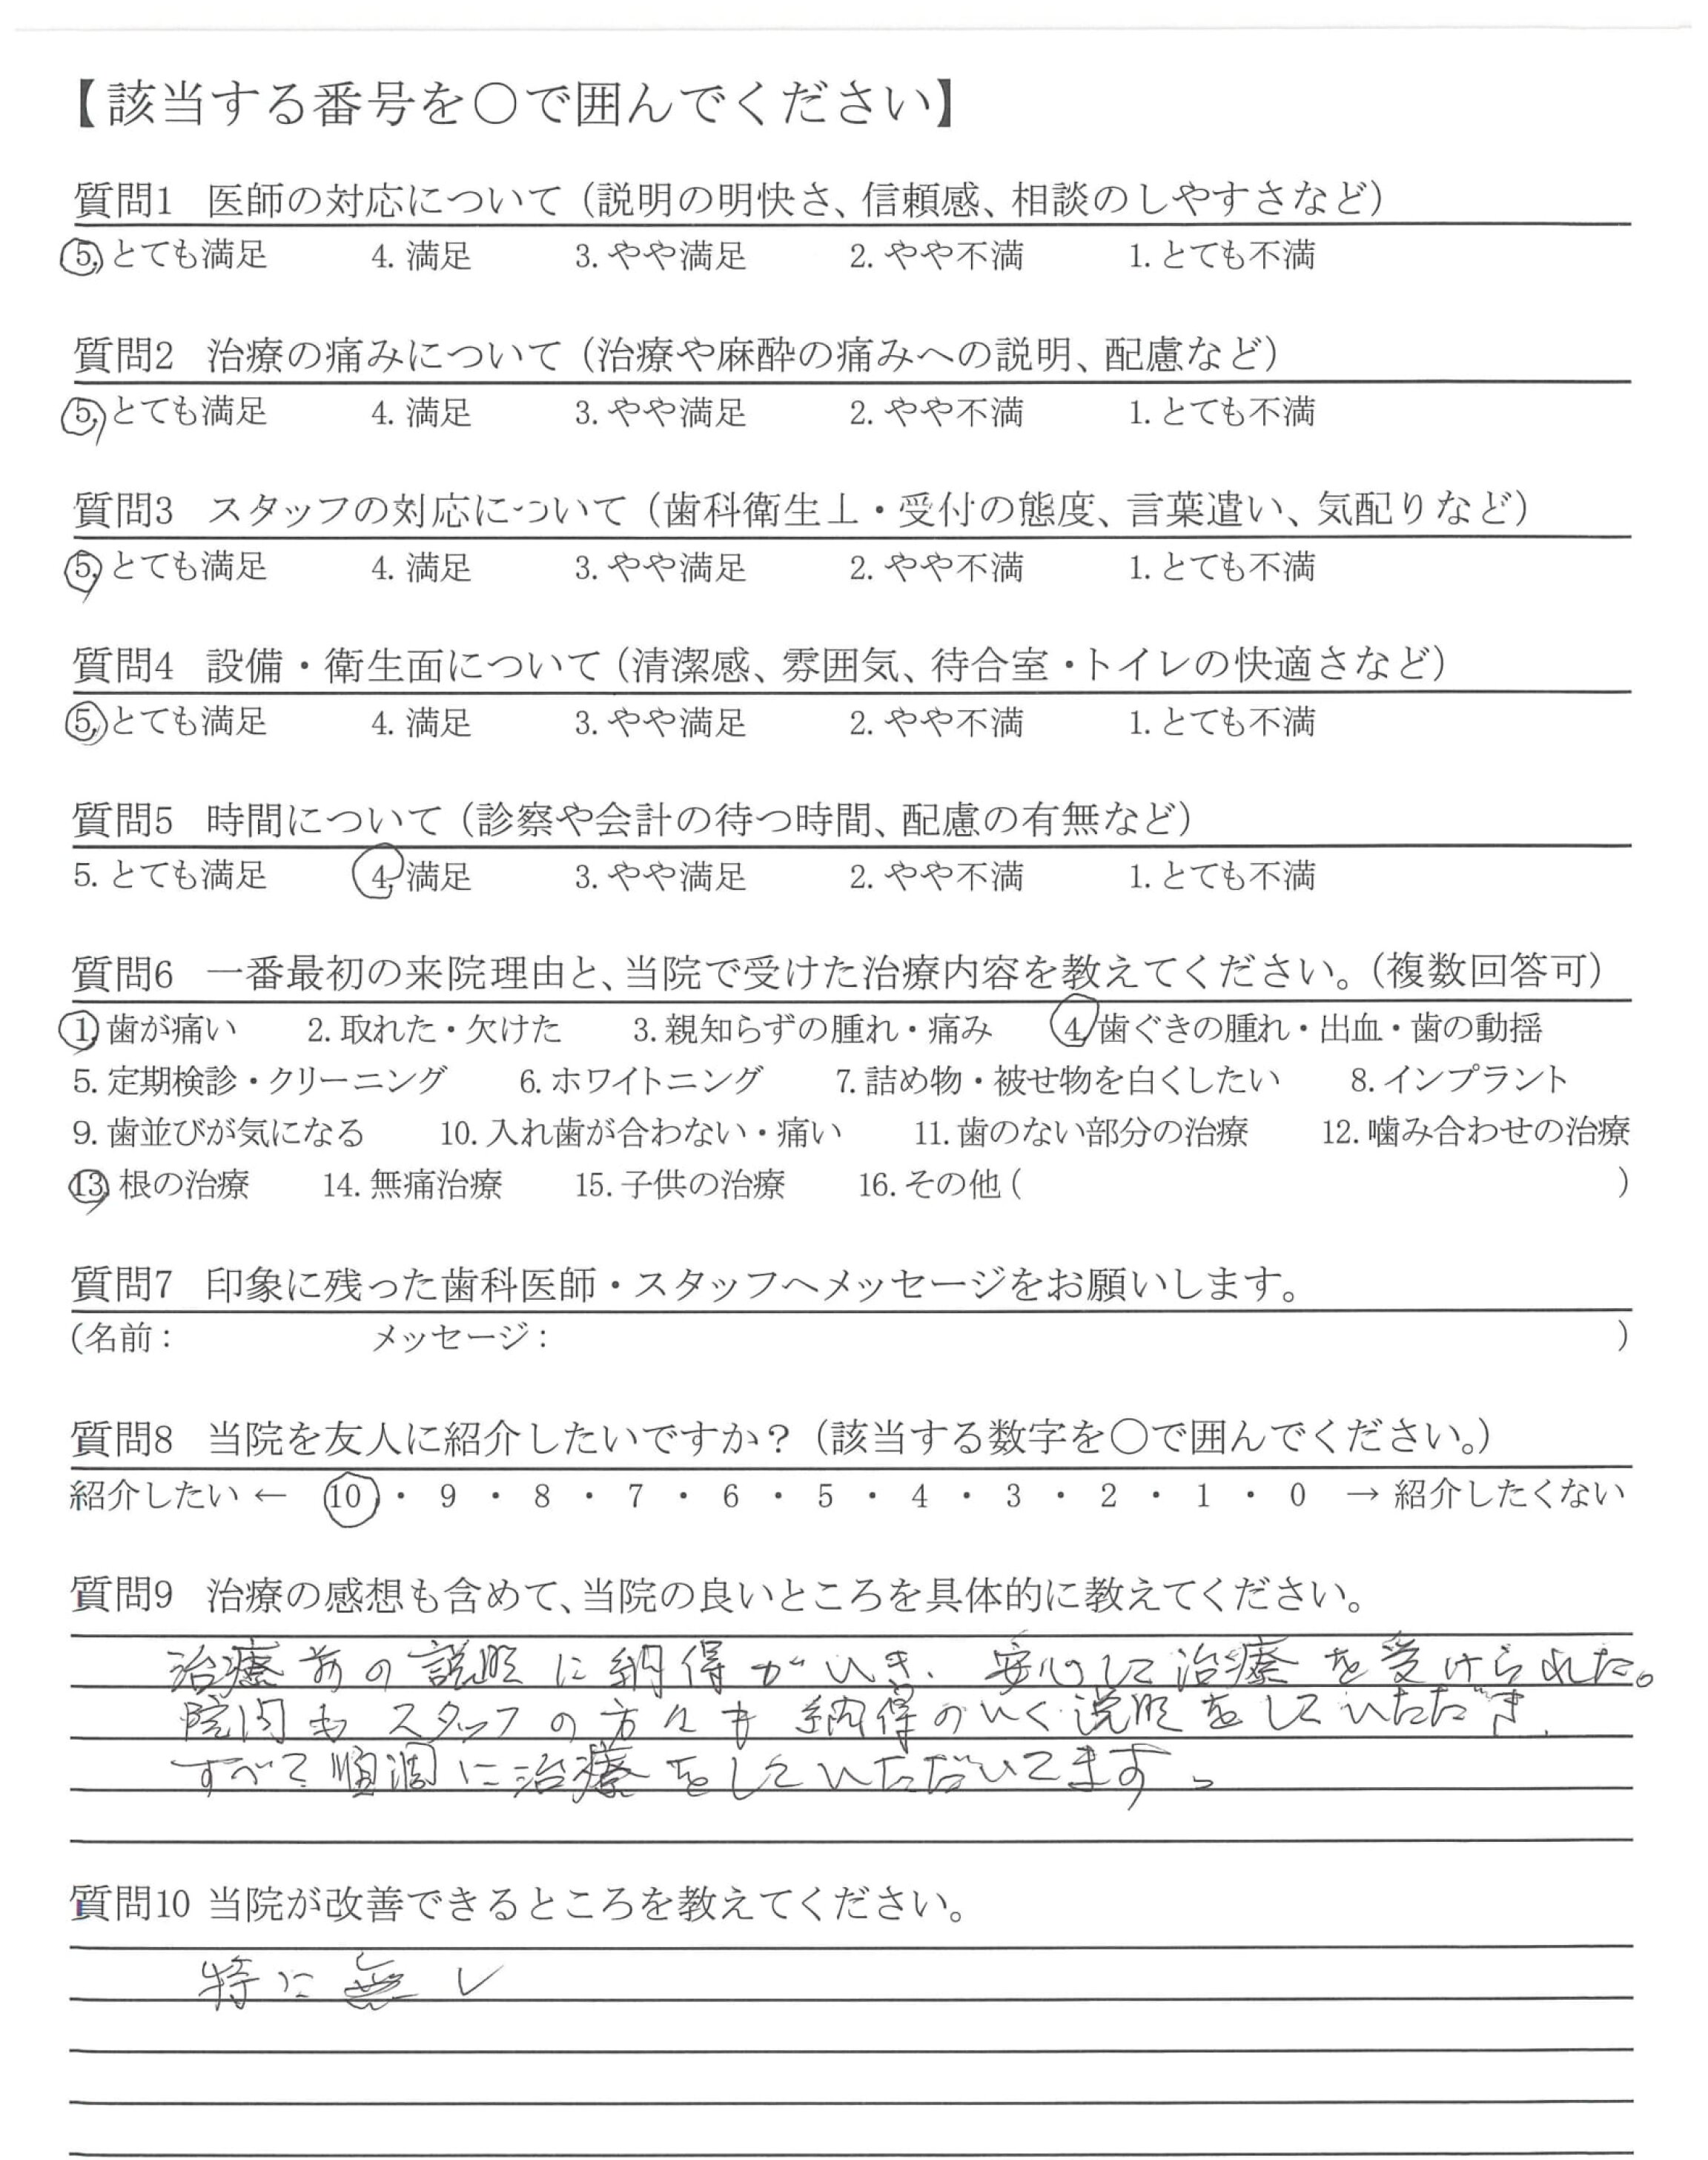 【該当する番号を〇で囲んでください】
質問1 医師の対応について（説明の明快さ、信頼感、相談のしやすさなど）
5. とても満足 4. 満足 3. やや満足 2. やや不満 1. とても不満
質問2 治療の痛みについて（治療や麻酔の痛みへの説明、配慮など）
5. とても満足 4. 満足 3. やや満足 2. やや不満 1. とても不満
質問3 スタッフの対応について（歯科衛生士・受付の態度、言葉遣い、気配りなど）
5. とても満足 4. 満足 3. やや満足 2. やや不満 1. とても不満
質問4 設備・衛生面について（清潔感、雰囲気、待合室・トイレの快適さなど）
5. とても満足 4. 満足 3. やや満足 2. やや不満 1. とても不満
質問5 時間について（診察や会計の待つ時間、配慮の有無など）
5. とても満足 4. 満足 3. やや満足 2. やや不満 1. とても不満
質問6 一番最初の来院理由と、当院で受けた治療内容を教えてください。（複数回答可）
1. 歯が痛い 2. 取れた・欠けた 3. 親知らずの腫れ・痛み 4. 歯ぐきの腫れ・出血・歯の動揺
5. 定期検診・クリーニング 6. ホワイトニング 7. 詰め物・被せ物を白くしたい 8. インプラント
9. 歯並びが気になる 10. 入れ歯が合わない・痛い 11. 歯のない部分の治療 12. 噛み合わせの治療
13. 根の治療 14. 無痛治療 15. 子供の治療 16. その他（ ）
質問7 印象に残った歯科医師・スタッフへメッセージをお願いします。
（名前： メッセージ： ）
質問8 当院を友人に紹介したいですか？（該当する数字を〇で囲んでください。）
紹介したい ← 10 ・ 9 ・ 8 ・ 7 ・ 6 ・ 5 ・ 4 ・ 3 ・ 2 ・ 1 ・ 0 → 紹介したくない
質問9 治療の感想も含めて、当院の良いところを具体的に教えてください。
治療前の説明に納得がいき、安心して治療を受けられた。
院内もスタッフの方々も納得のいく説明をしていただき、
すべて順調に治療をしていただいてます。
質問10 当院が改善できるところを教えてください。
特に無し